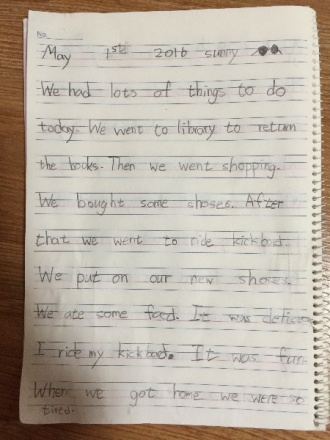 No.
May 1st 2016 sunny
We had lots of things to do
today. We went to library to return
the books. Then we went shopping.
We bought some shoses. After
that we went to ride kickbod.
We put on our new shoses.
We ate some food. It was
I ride my kickbod. It was fun.
When we got home we were so
tired.